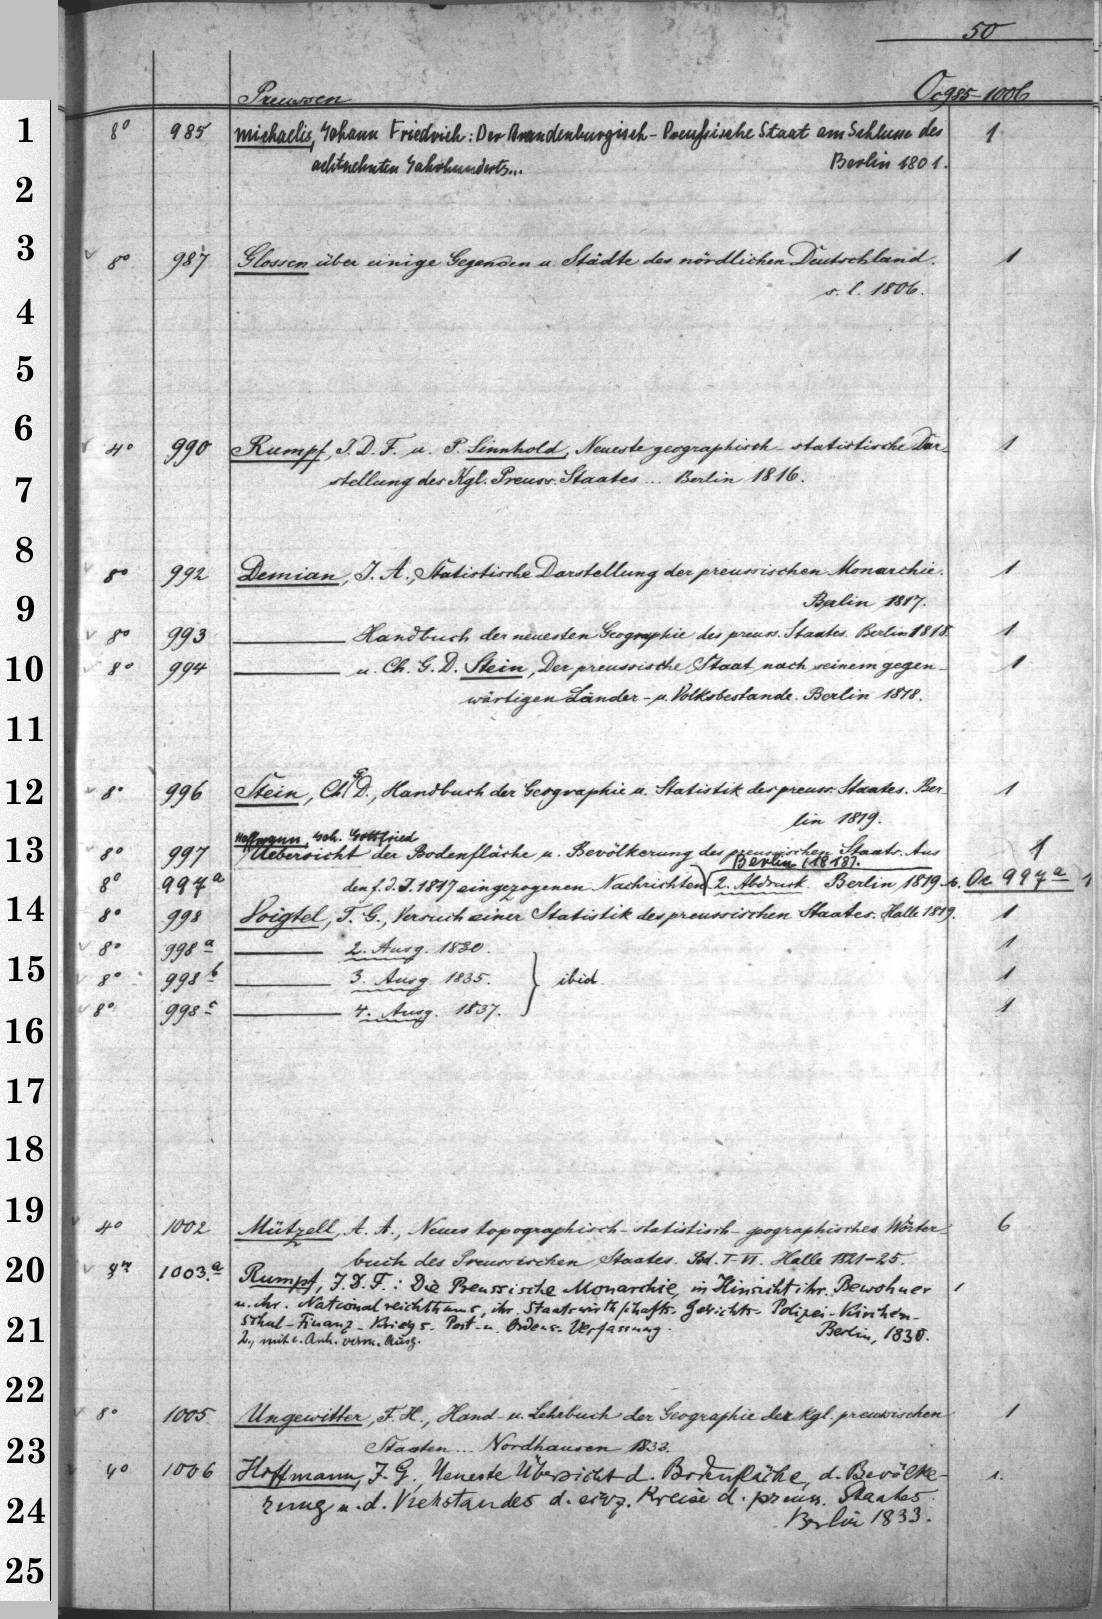 50
Preussen Oc 985-1006
1 8° 985 Michaelis, Johann Friedrich: Der Brandenburgisch-Preußische Staat am Schlusse des 1
achtzehnten Jahrhunderts... Berlin 1801.
2
3 v 8° 987 Glossen über einige Gegenden u. Städte des nördlichen Deutschland. 1
s. l. 1806.
4
5
6 v 4° 990 Rumpf, J. D. F. u. P. Sinnhold, Neueste geographisch-statistische Dar- 1
7 stellung des Kgl. Preuss. Staates ... Berlin 1816.
8 v 8° 992 Demian, J. A., Statistische Darstellung der preussischen Monarchie. 1
9 Berlin 1817.
v 8° 993 ——— Handbuch der neuesten Geographie des preuss. Staates. Berlin 1818. 1
10 v 8° 994 ——— u. Ch. G. D. Stein, Der preussische Staat nach seinem gegen- 1
wärtigen Länder- u. Volksbestande. Berlin 1818.
11
12 v 8° 996 Stein, Ch. G. D., Handbuch der Geographie u. Statistik des preuss. Staates. Ber- 1
lin 1819.
Hoffmann, Joh. Gottfried
13 v 8° 997 Uebersicht der Bodenfläche u. Bevölkerung des preussischen Staats. Aus 1
Berlin (1818).
8° 997a den f. d. J. 1817 eingezogenen Nachrichten 2. Abdruck. Berlin 1819. Oc 997a 1
14 8° 998 Voigtel, T. G., Versuch einer Statistik des preussischen Staates. Halle 1819. 1
v 8° 998a ——— 2. Ausg. 1830. 1
15 v 8° 998b ——— 3. Ausg. 1835. } ibid. 1
v 8° 998c ——— 4. Ausg. 1837. 1
16
17
18
19 v 4° 1002 Mützell, A. A., Neues topographisch-statistisch-geographisches Wörter- 6
buch des Preussischen Staates. Bd. I-VI. Halle 1821-25.
20 v 1003.a Rumpf, J. D. F.: Die Preussische Monarchie, in Hinsicht ihr. Bewohner 1
u. ihr. Nationalreichthums, ihr. Staatswirthschafts- Gerichts- Polizei- Kirchen-
21 Schul- Finanz- Kriegs- Post- u. Ordens- Verfassung. Berlin, 1830.
2., mit e. Anh. verm. Ausg.
22 v 8° 1005 Ungewitter, F. H., Hand- u. Lehrbuch der Geographie der Kgl. preussischen 1
23 Staaten ... Nordhausen 1833.
v 4° 1006 Hoffmann, J. G., Neueste Übersicht d. Bodenfläche, d. Bevölke- 1.
24 rung u. d. Viehstandes d. einz. Kreise d. preuss. Staates.
Berlin 1833.
25